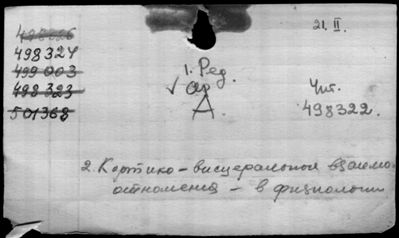 21. II.
498326
498327
499003
498323
501368
1. Ред.
А
Чит.
498322.
2. Кортико-висцеральной взаимо
отношения - в физиологии